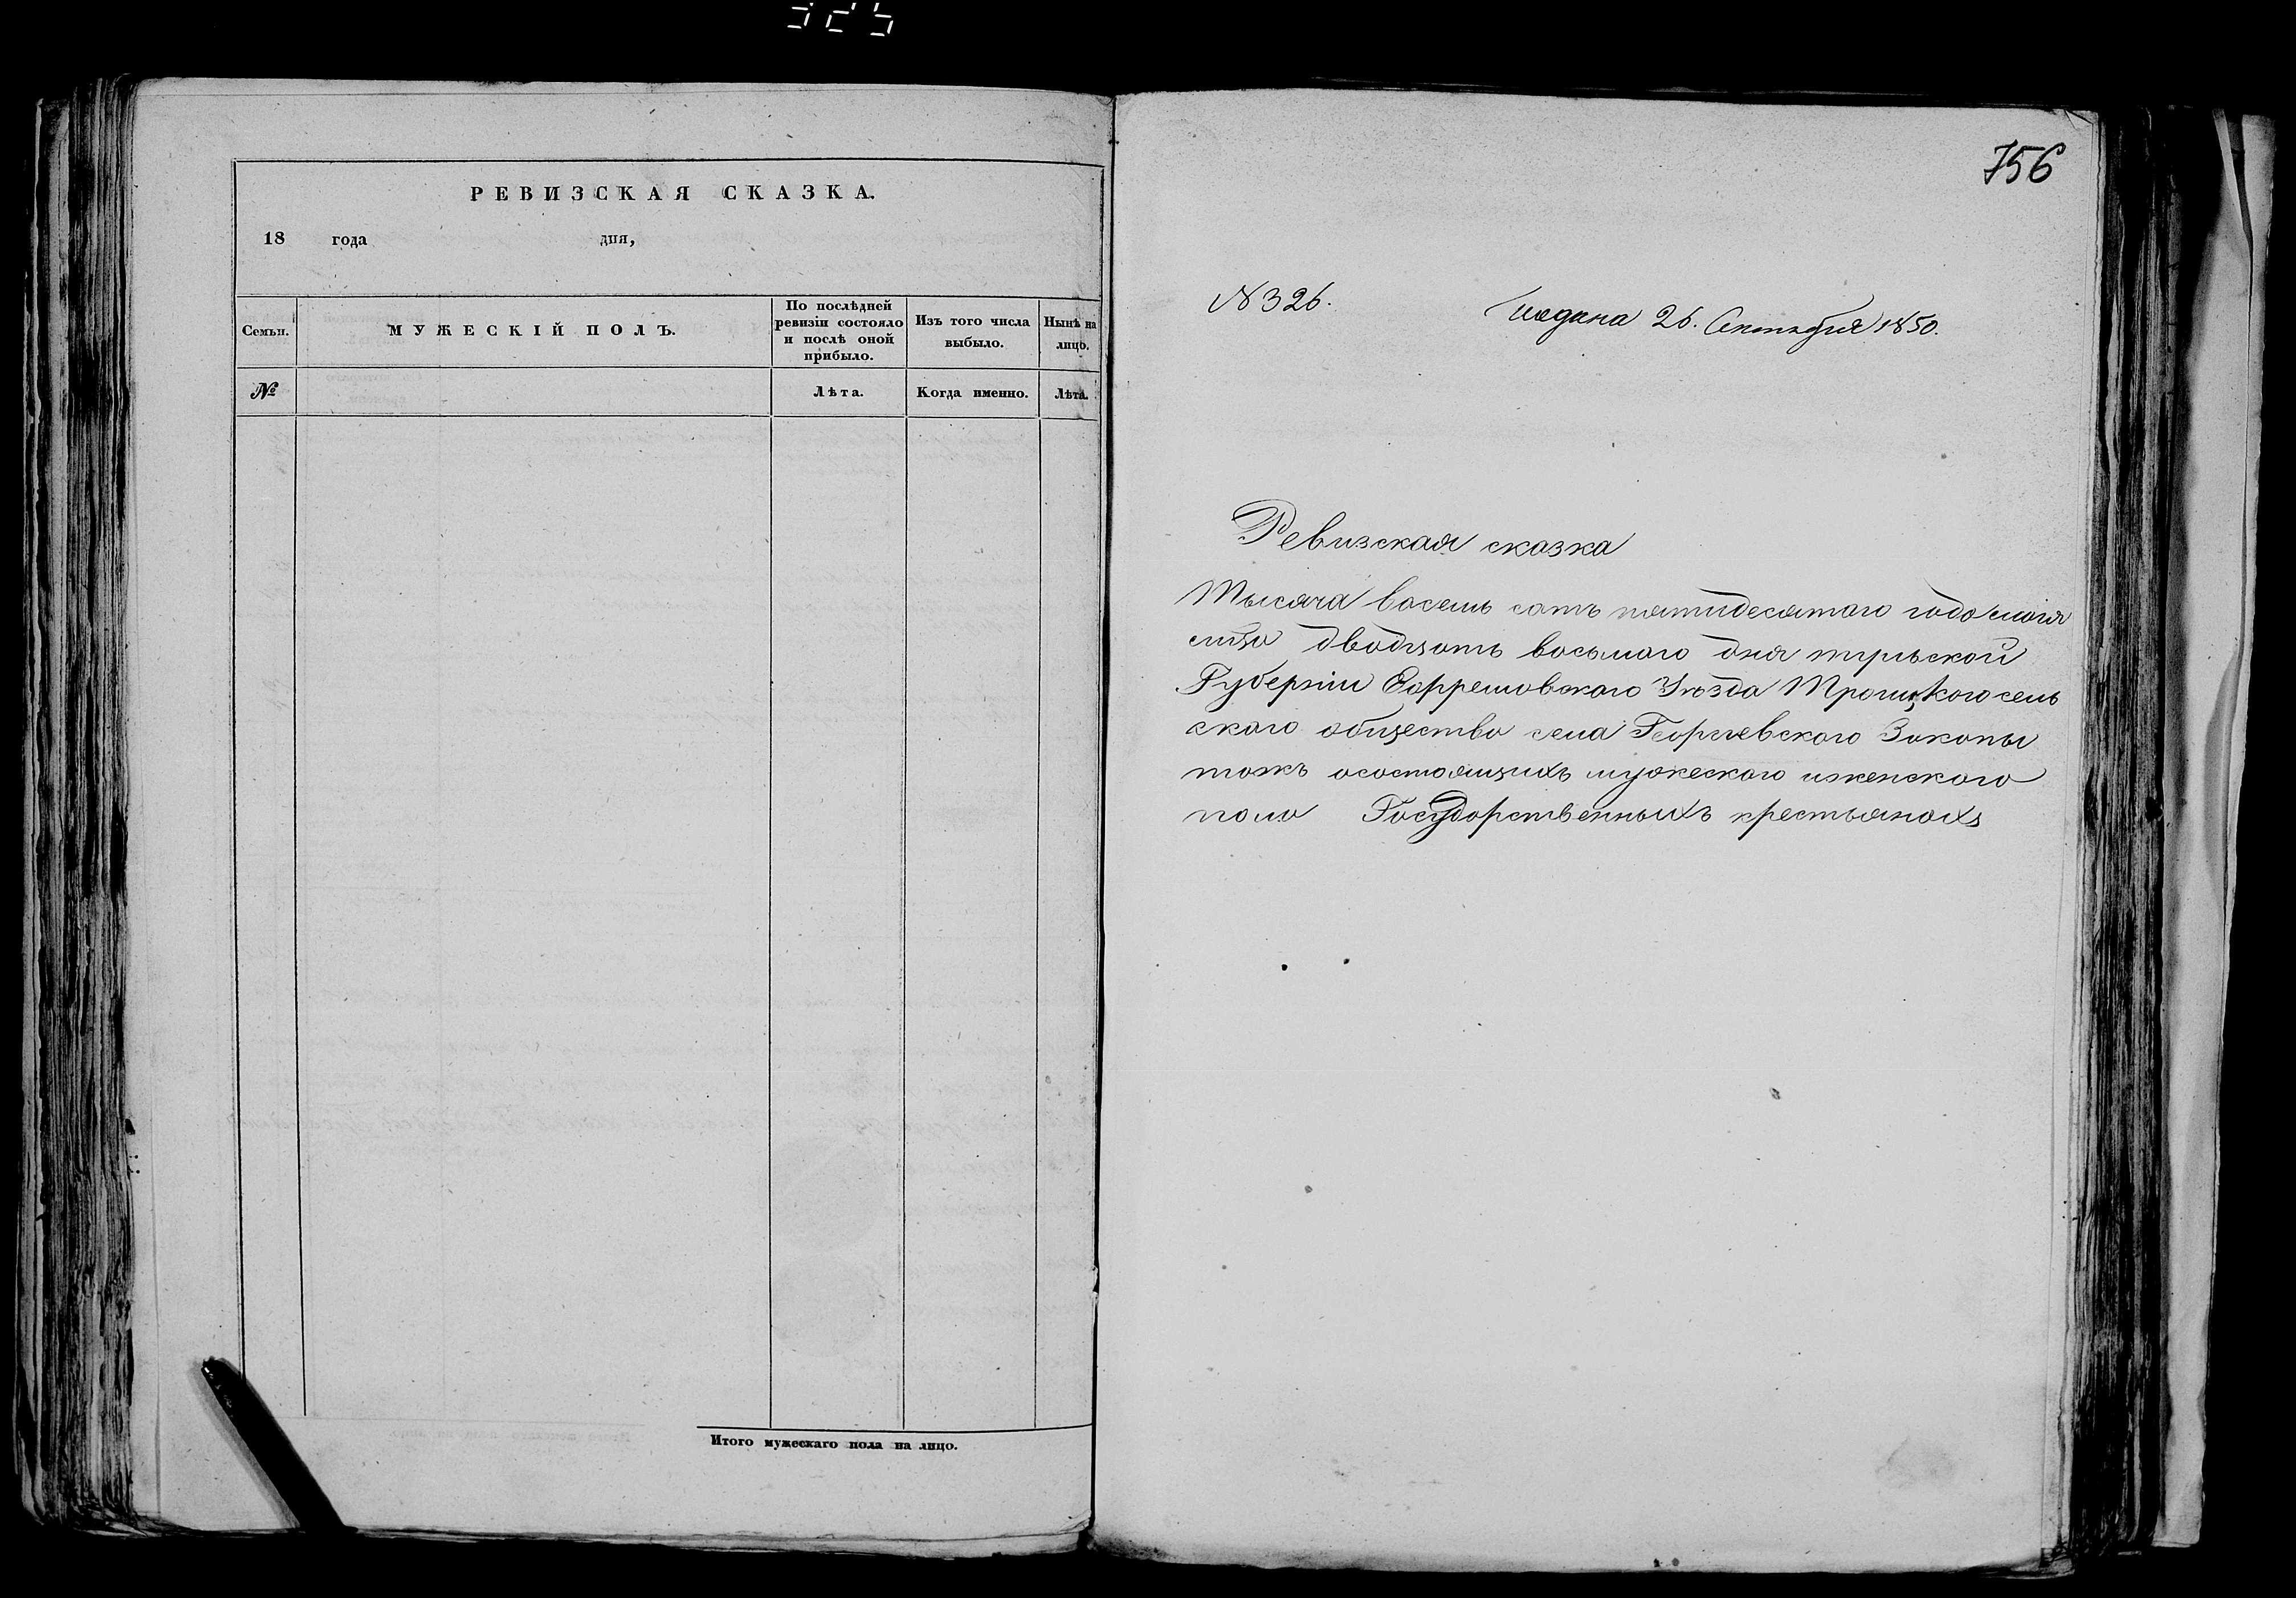 РЕВИЗСКАЯ СКАЗКА.
18 года дня,
Семьи.
МУЖЕСКІЙ ПОЛЪ.
По послѣдней ревизіи состояло и послѣ оной прибыло.
Изъ того числа выбыло.
Нынѣ на лицо.
№
Лѣта.
Когда именно.
Лѣта.
Итого мужескаго пола на лицо.
756
N 326.
Подана 26. Сентября 1850.
Ревизская сказка
Тысяча восемь сотъ пятидесятаго года
двадцать восьмаго дня
Губерніи Ефремовскаго Уѣзда Троицкого сель
скаго общества села Георгиевского Закопы
тожъ осостоящихъ мужескаго иженскаго
пола Государственныхъ крестьянахъ